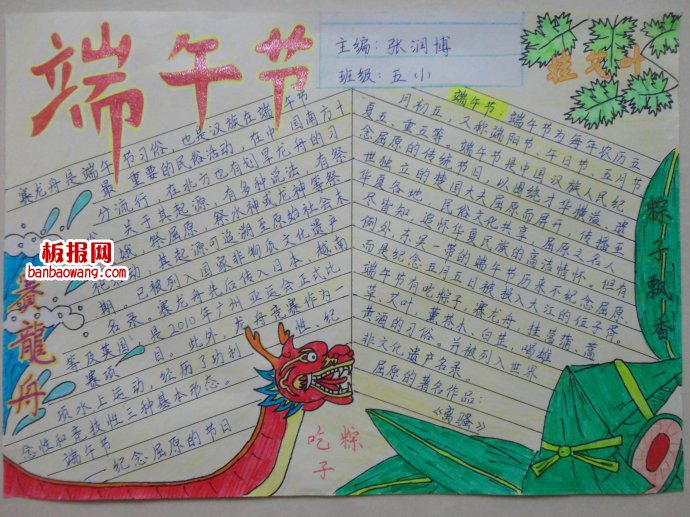 端午节
主编：张润博
班级：五小
挂艾叶
赛龙舟是端午节习俗，也是汉族在端午节
最重要的民俗活动，在中国南方十
分流行，在北方也有划旱龙舟的习
关于其起源，有多种说法，有祭
祭屈原，祭水神或龙神等祭
其起源可追溯至原始社会末
期。已被列入国家非物质文化遗产
名录。赛龙舟先后传入日本、越南
等及英国，是2010年广州亚运会正式比
赛项目。此外，龙舟竞赛作为一
项水上运动，经历了功利性、纪
念性和竞技性三种基本形态。
端午节
纪念屈原的节日
端午节：端午节为每年农历五
月初五，又称端阳节、午日节、五月节
夏五、重五等。端午节是中国汉族人民纪
念屈原的传统节日，以围绕才华横溢、遗
世独立的楚国大夫屈原而展开，传播至
华夏各地，民俗文化共享，屈原之名人
尽皆知，追怀华夏民族的高洁情怀。但有
例外，东吴一带的端午节历来不纪念屈原，
而是纪念五月五日被投入大江的伍子胥。
端午节有吃粽子，赛龙舟，挂菖蒲、蒿
草、艾叶，薰苍术、白芷，喝雄
黄酒的习俗。并被列入世界
非文化遗产名录。
屈原的著名作品：
《离骚》
粽子飘香
板报网
banbaowang.com
赛龍舟
吃粽子